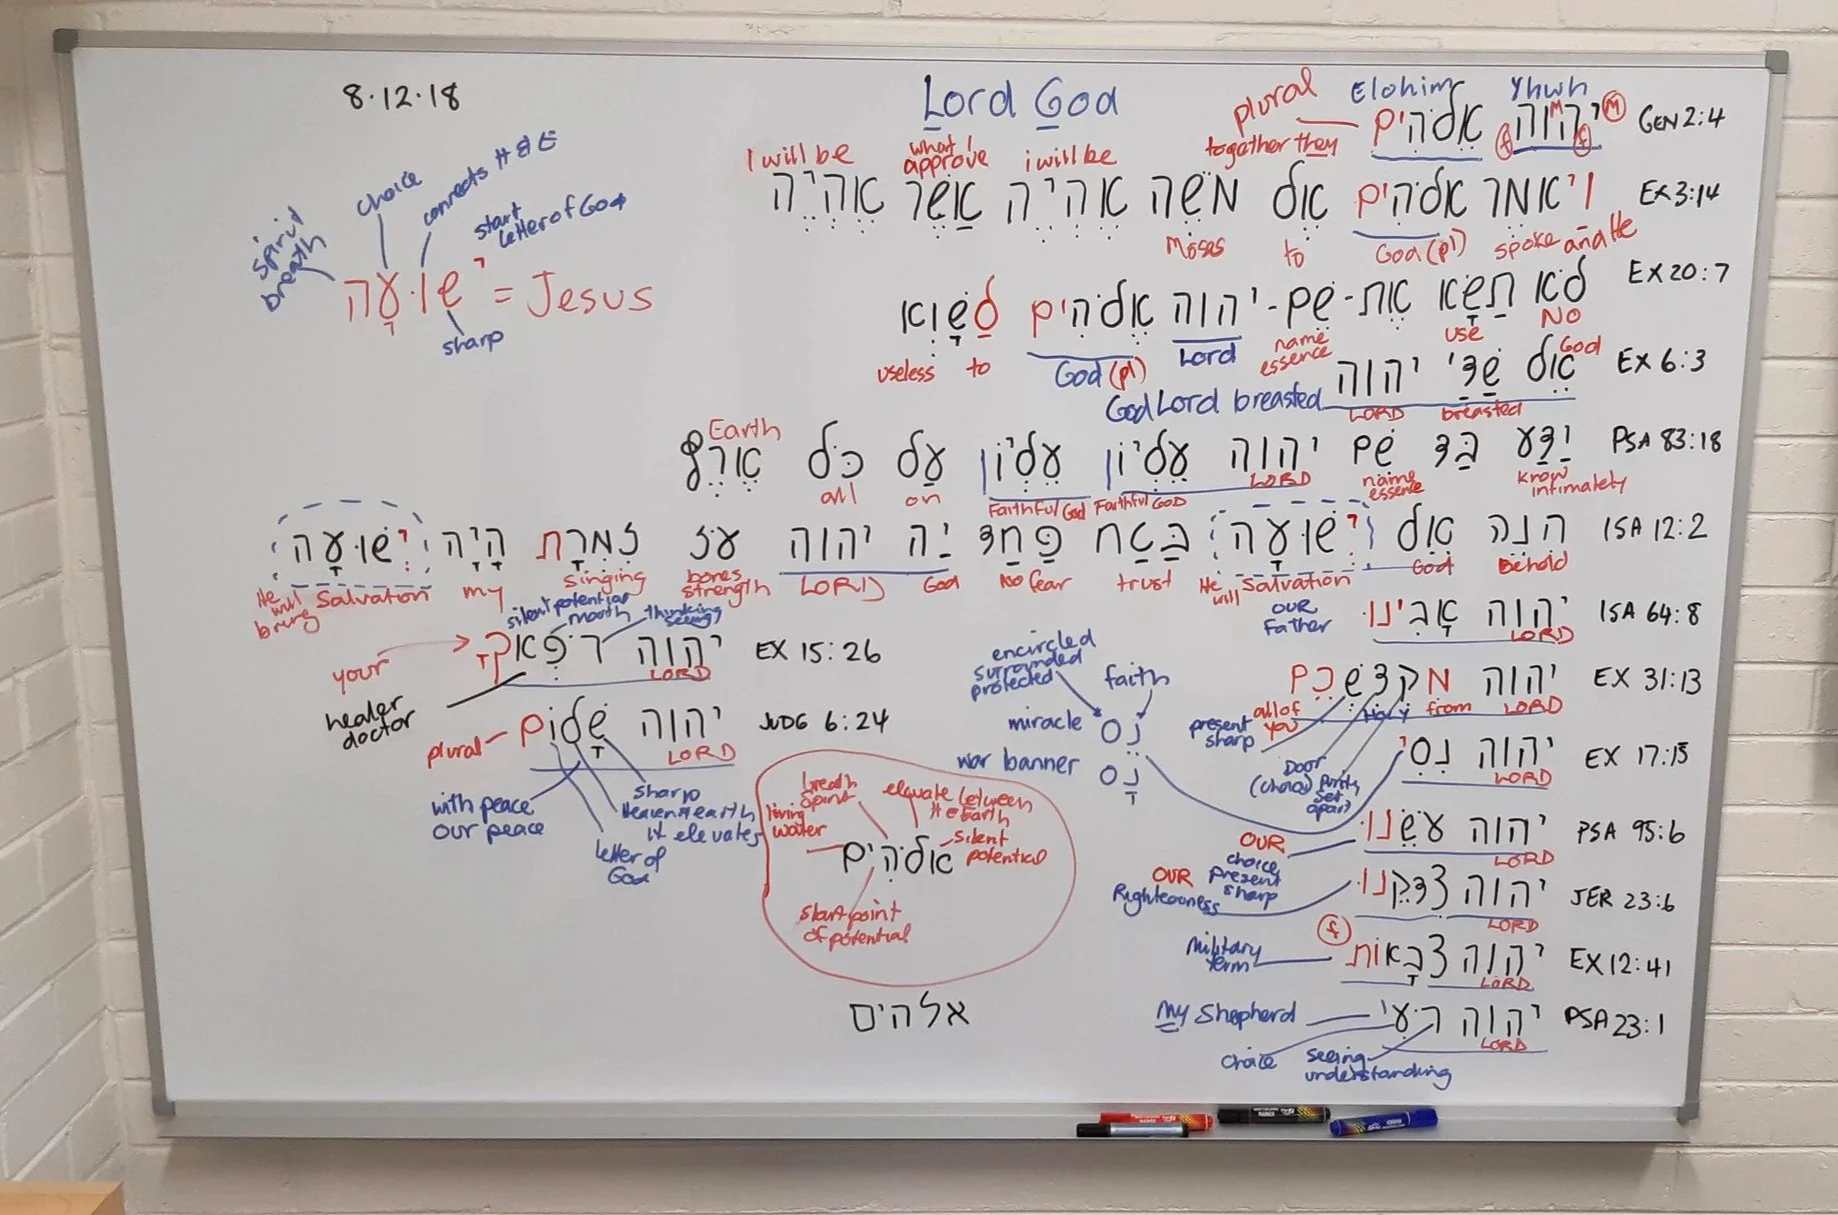 8.12.18
Lord God
plural
Elohim
Yhwh
יהוה אלהים GEN 2:4
M
M
f
f
together they
I will be
what I approve
i will be
ויאמר אלהים אל משה אהיה אשר אהיה EX 3:14
and He
spoke
God (pl)
to
Moses
לא תשא את-שם-יהוה אלהים לשוא EX 20:7
NO
use
name essence
Lord
God (pl)
to
useless
אל שדי יהוה EX 6:3
God
breasted
LORD
God Lord breasted
ידע בד שם יהוה עליון עליון על כל ארץ PSA 83:18
know intimately
name essence
LORD
Faithful GOD
Faithful God
on
all
Earth
הנה אל ישועה בטח פחד יה יהוה עז זמרת היה ישועה ISA 12:2
Behold
God
He will
Salvation
trust
No fear
God
LORD
bones strength
singing
my
Salvation
He will bring
יהוה אבינו ISA 64:8
LORD
OUR Father
יהוה מקדשכם EX 31:13
LORD
from
Holy
all of you
present sharp
Door (choice)
Purity set apart
יהוה נסי EX 17:15
LORD
encircled surrounded protected
faith
miracle נס
war banner נס
יהוה עשנו PSA 95:6
LORD
OUR
choice
present sharp
יהוה צדקנו JER 23:6
LORD
OUR
Righteousness
יהוה צבאות EX 12:41
LORD
f
military term
יהוה רעי PSA 23:1
LORD
My Shepherd
choice
seeing understanding
spirit breath
choice
connects H & E
start letter of God
ישועה = Jesus
sharp
יהוה רפאך EX 15:26
LORD
your
healer doctor
silent potential
mouth
thinking seeing
יהוה שלום JUDG 6:24
LORD
plural
with peace
our peace
letter of God
sharp
Heaven + earth
it elevates
breath spirit
elevate between H + Earth
living water
silent potential
אלהים
start point of potential
אלהים